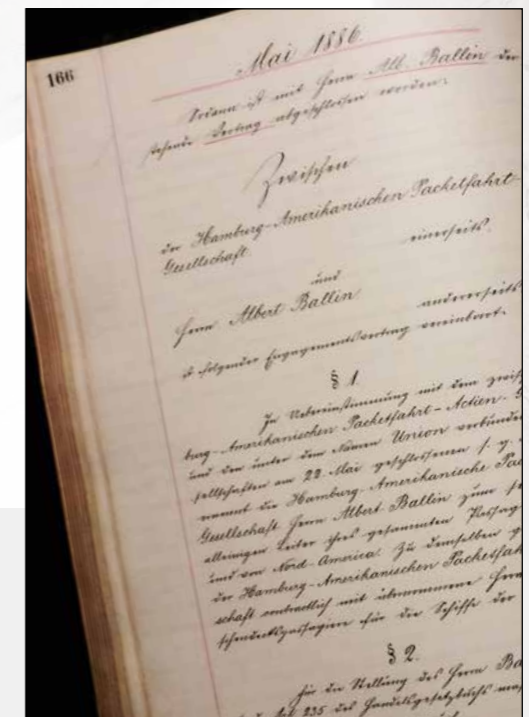 166
Mai 1886.
Sodann ist mit Herrn Alb. Ballin der
stehende Vertrag abgeschlossen worden:
Zwischen
der Hamburg-Amerikanischen Packetfahrt-
Gesellschaft
einerseits.
und
Herrn Albert Ballin
andererseits
ist folgender Engagementsvertrag vereinbart.
§ 1.
In Uebereinstimmung mit dem zwisch
burg-Amerikanischen Packetfahrt-Actien-G
und den unter dem Namen Union verbunden
sellschaften am 22. Mai geschlossenen s. g.
ernennt die Hamburg-Amerikanische Pac
Gesellschaft Herrn Albert Ballin zum
alleinigen Leiter ihres gesammten Passag
und von Nord-America. Zu demselben
der Hamburg-Amerikanischen Packetfah
schaft contractlich mit übernommene Herr
schendeckspassagiere für die Schiffe der
§ 2.
Für die Stellung des Herrn Ba
Art 235 des Handelsgesetzbuchs